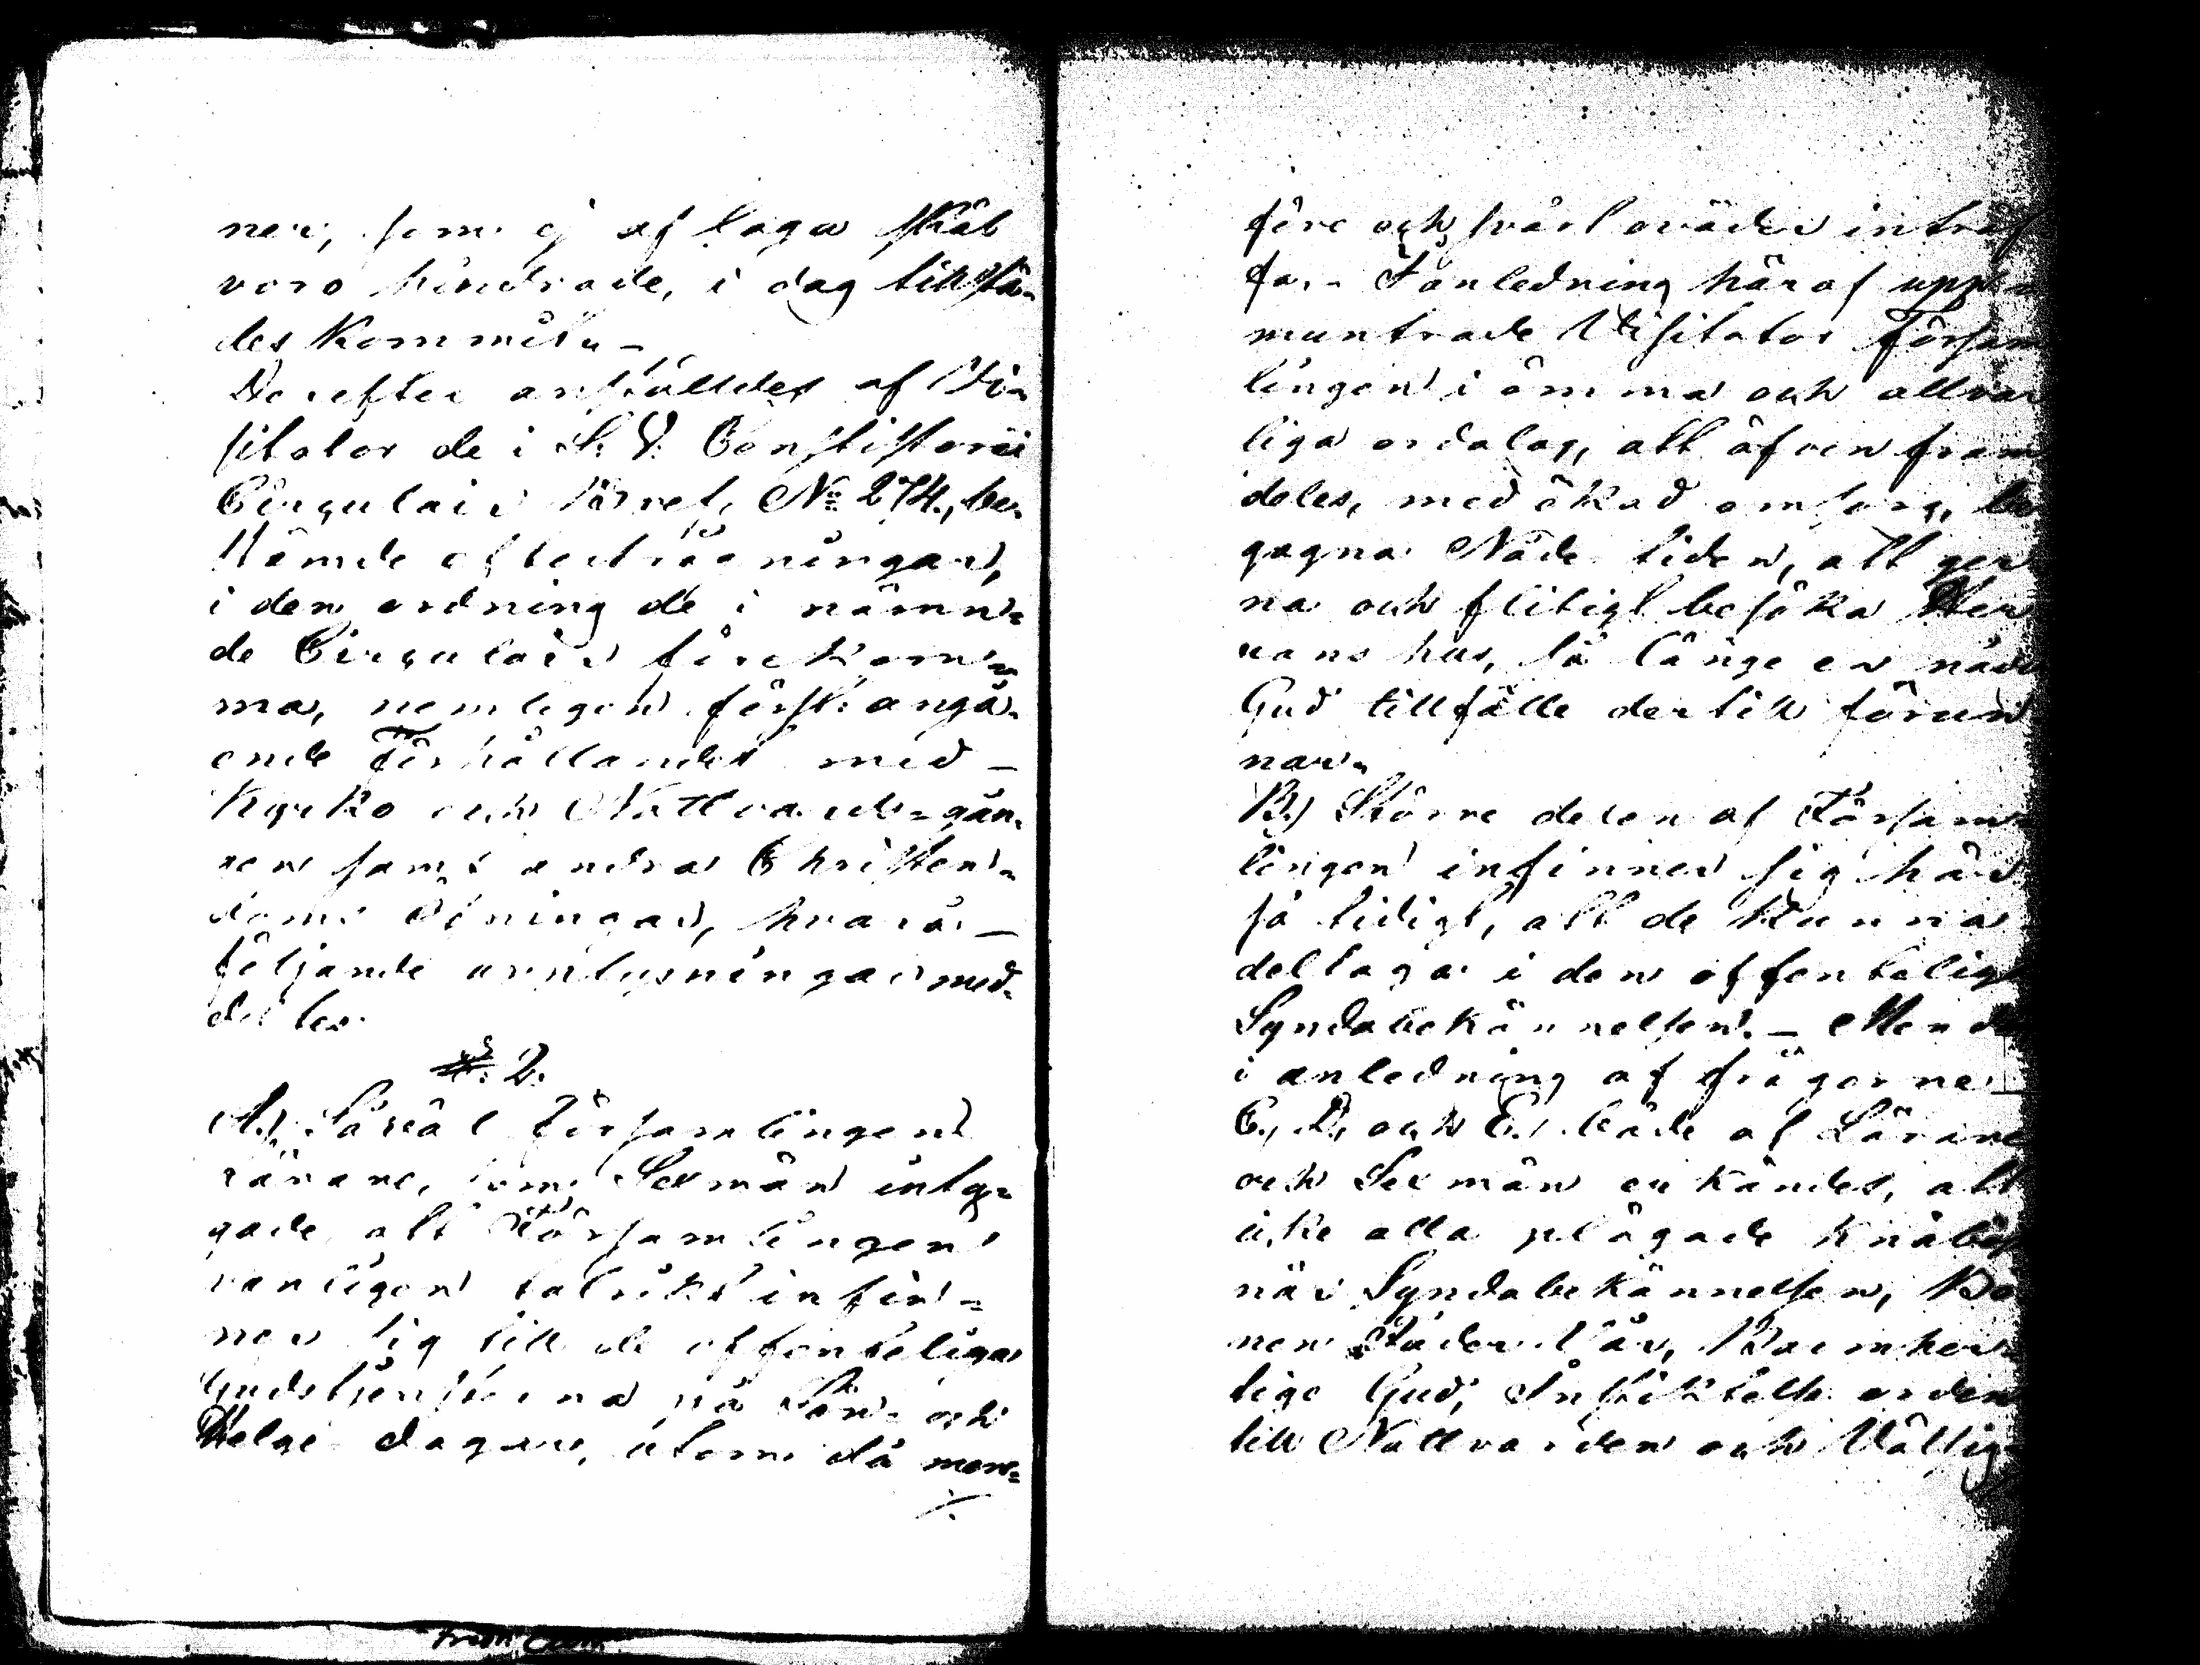 ner, som ej af laga skäl
voro hindrade, i dag tillstä-
des kommit. -
Derefter anställdes af Vi-
sitator de i S. V. Consistorii
Circulair Bref, No 274, be-
stämde efterfrågningar,
i den ordning de i nämn-
de Circulair förekom-
ma, nemligen först: angå-
ende Förhållandet med -
Kyrko och Nattvards-gån-
gen samt andra Christen-
doms öfningar, hvarå -
följande upplysningar med-
deltes.
§. 2.
A.) Såväl Församlingens
Lärare, som Sexmän inty-
gade, att Församlingen
vanligen talrikt infin-
ner sig till de offenteliga
Gudstjensterna på Sön- och
Helge dagar, utom då men-
/.
före och svårt oväder inträf
far. I anledning häraf upp-
muntrade Visitator Försam
lingen i ömma och allvar
liga ordalag, att äfven fram
deles, med ökad omsorg, be
gagna Nåde tiden, att ger
na och flitigt besöka Her
rans hus, så länge en nådig
Gud tillfälle dertill förun
nar.
B.) Större delen af Försam-
lingen infinner sig här
så tidigt, att de kunna
deltaga i den offentelige
Syndabekännelsen. - Men då
i anledning af frågorne
C., D., och E., både af Lärare
och Sexmän erkändes, att
icke alla plägade knäböja
när Syndabekännelsen, Bö
nen Fader vår, Barmher-
tige Gud, Instiktelse orden
till Nattvarden och Välsig-